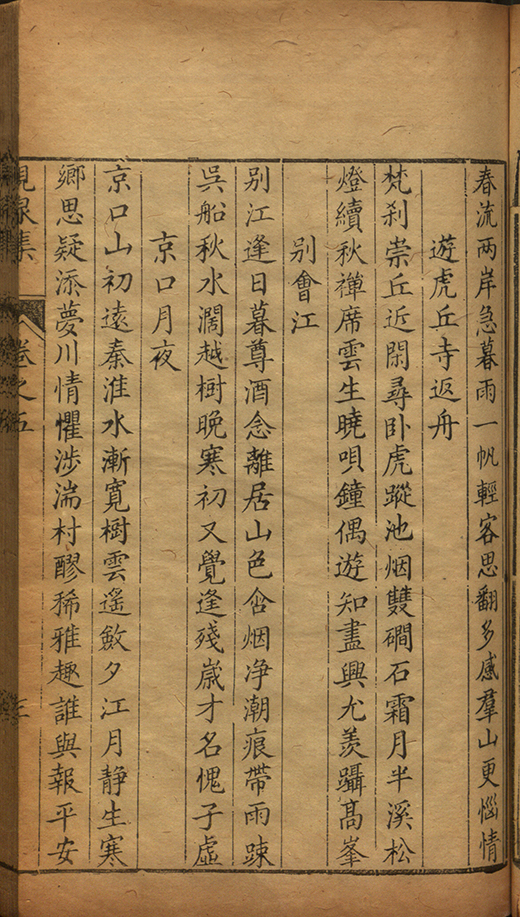 春流两岸急暮雨一帆輕客思翻多感羣山更惱情
遊虎丘寺返舟
梵刹崇丘近閑尋卧虎蹤池烟雙磵石霜月半溪松
燈續秋禪席雲生曉唄鐘偶遊知盡興尤羨躡髙峯
别會江
别江逢日暮尊酒念離居山色含烟净潮痕帶雨踈
吳船秋水濶越樹晚寒初又覺逢殘嵗才名愧子虛
京口月夜
京口山初遠秦淮水漸寛樹雲遙斂夕江月靜生寒
鄉思疑添夢川情懼涉湍村醪稀雅趣誰與報平安
卷之五